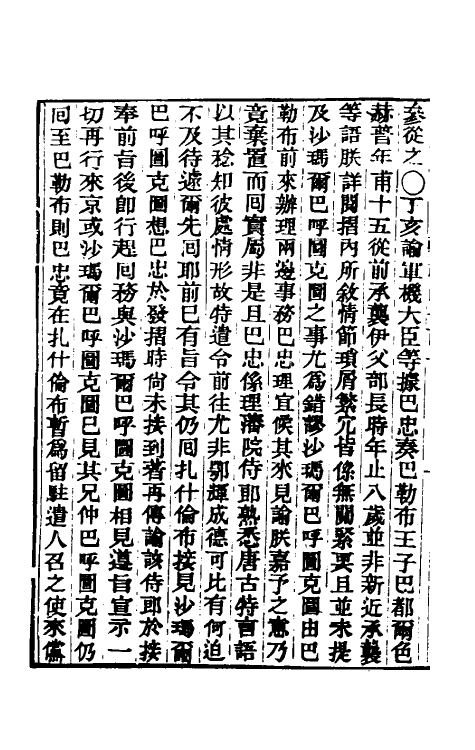 參從之〇丁亥諭軍機大臣等據巴忠奏巴勒布王子巴都爾色
赫普年甫十五從前承襲伊父部長時年止八歲並非新近承襲
等語朕詳閱摺內所敘情節瑣屑繁冗皆係無關緊要且並未提
及沙瑪爾巴呼圖克圖之事尤為錯謬沙瑪爾巴呼圖克圖由巴
勒布前來辦理兩邊事務巴忠理宜候其來見諭朕嘉予之意乃
竟棄置而回實屬非是且巴忠係理藩院侍郎熟悉唐古特言語
以其稔知彼處情形故特遣令前往尤非鄂輝成德可比有何迫
不及待遽爾先回耶前已有旨令其仍回扎什倫布接見沙瑪爾
巴呼圖克圖想巴忠於發摺時尚未接到著再傳諭該侍郎於接
奉前旨後即行起回務與沙瑪爾巴呼圖克圖相見遵旨宣示一
切再行來京或沙瑪爾巴呼圖克圖已見其兄仲巴呼圖克圖仍
回至巴勒布則巴忠竟在扎什倫布暫為留駐遣人召之使來儻